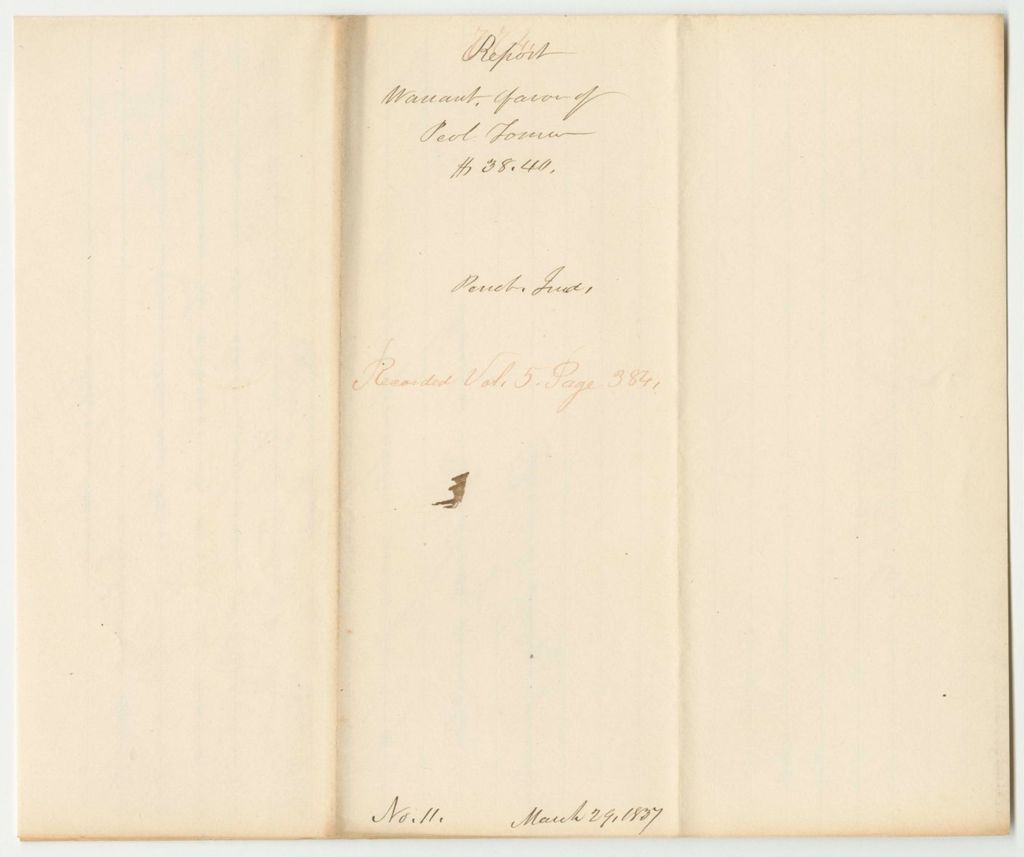 Report
Warrant, favor of
Peol Tomer
$ 38.40.
Penobt. Ind,
Recorded Vol. 5. Page 384,
No. 11. March 29, 1837